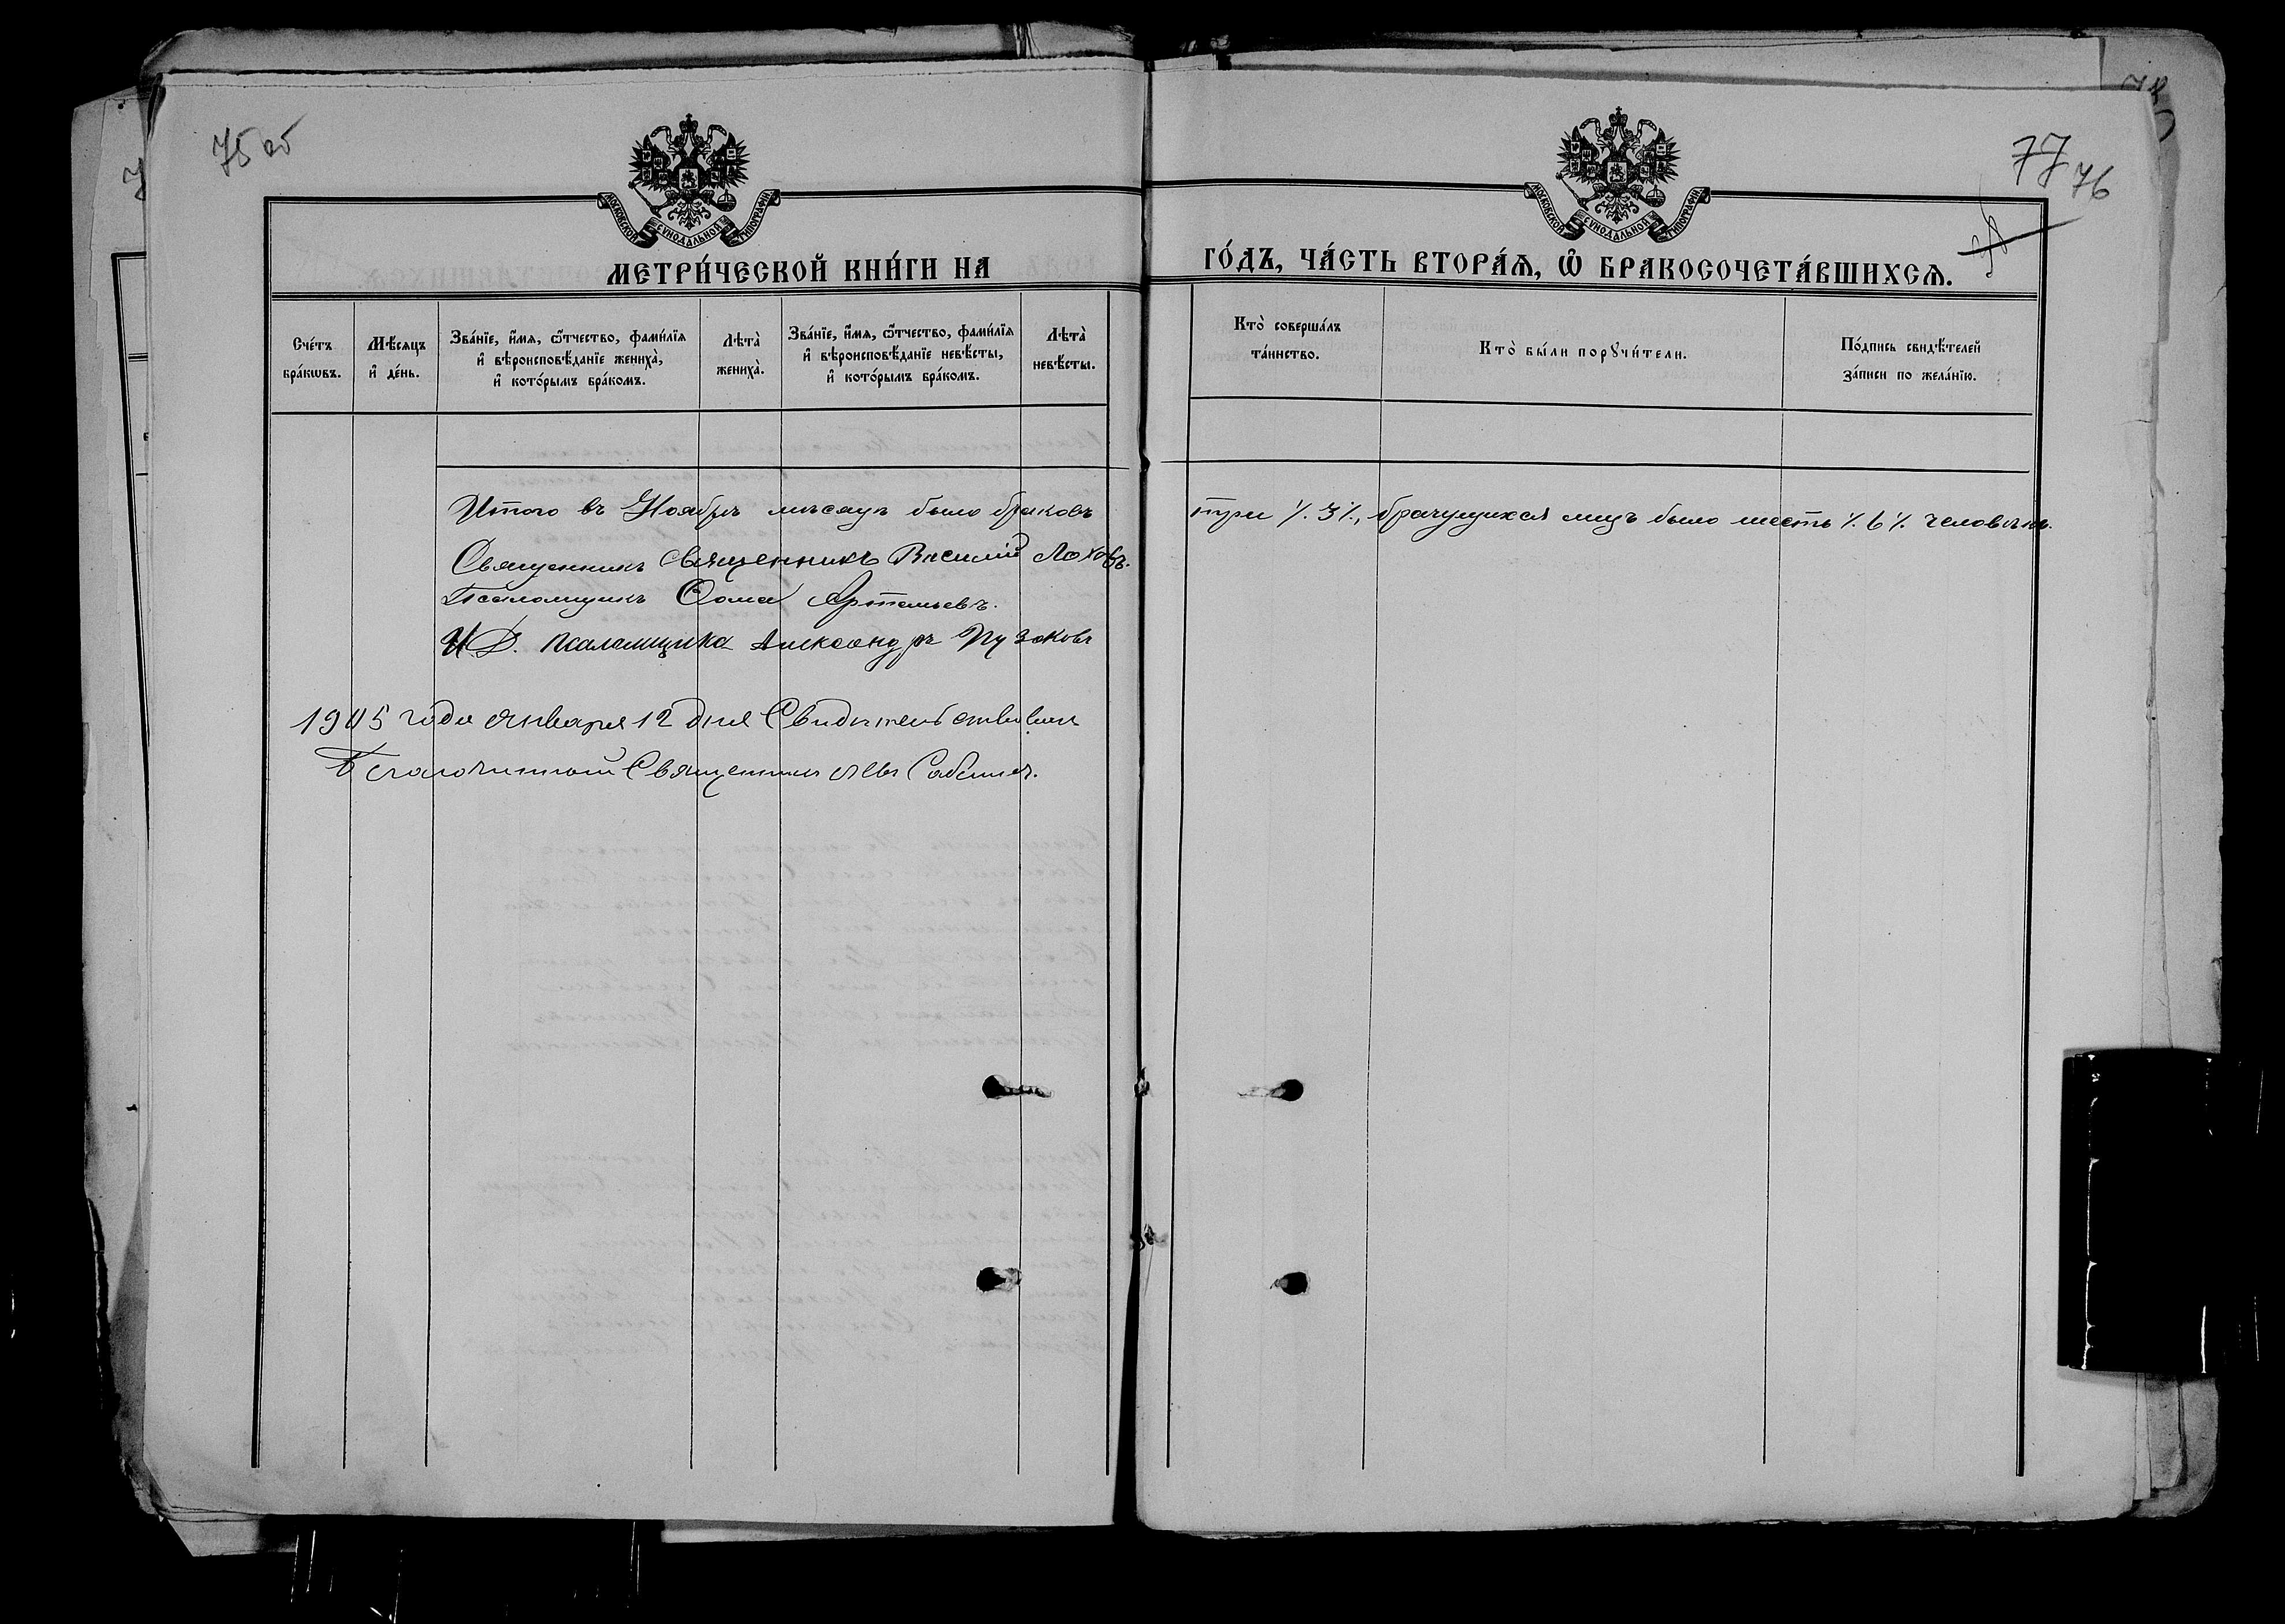 75 об
77
76
МОСКОВСКОЙ СѴНОДАЛЬНОЙ ТИПОГРАФІИ
МОСКОВСКОЙ СѴНОДАЛЬНОЙ ТИПОГРАФІИ
МЕТРИ́ЧЕСКОЙ КНИ́ГИ НА
ГО́ДЪ, ЧА́СТЬ ВТОРА́Ѧ, Ѡ҆ БРАКОСОЧЕТА́ВШИХСѦ.
Сче́тъ бра́кѡвъ.
Мѣ́сяцъ и҆ де́нь.
Зва́нїе, и҆́мѧ, ѻ҆́тчество, фами́лїѧ и҆ вѣроисповѣ́данїе жениха̀, и҆ кото́рымъ бра́комъ.
Лѣта̀ жениха̀.
Зва́нїе, и҆́мѧ, ѻ҆́тчество, фами́лїѧ и҆ вѣроисповѣ́данїе невѣ́сты, и҆ кото́рымъ бра́комъ.
Лѣта̀ невѣ́сты.
Кто̀ соверша́лъ та́инство.
Кто̀ бы́ли порꙋчи́тели.
По́дпись свидѣ́телей за́писи по жела́нїю.
Итого въ Ноябрѣ мѣсяцѣ было браковъ три ./. 3 ./., брачущихся лицъ было шесть ./. 6 ./. человѣкъ.
Священникъ Священникъ Василій Лоховъ.
Псаломщикъ Ѳома Артемьевъ.
И.Д. псаломщика Александръ Пузаковъ
1905 года Января 12 дня Свидѣтельствовалъ
Благочинный Священникъ Левъ